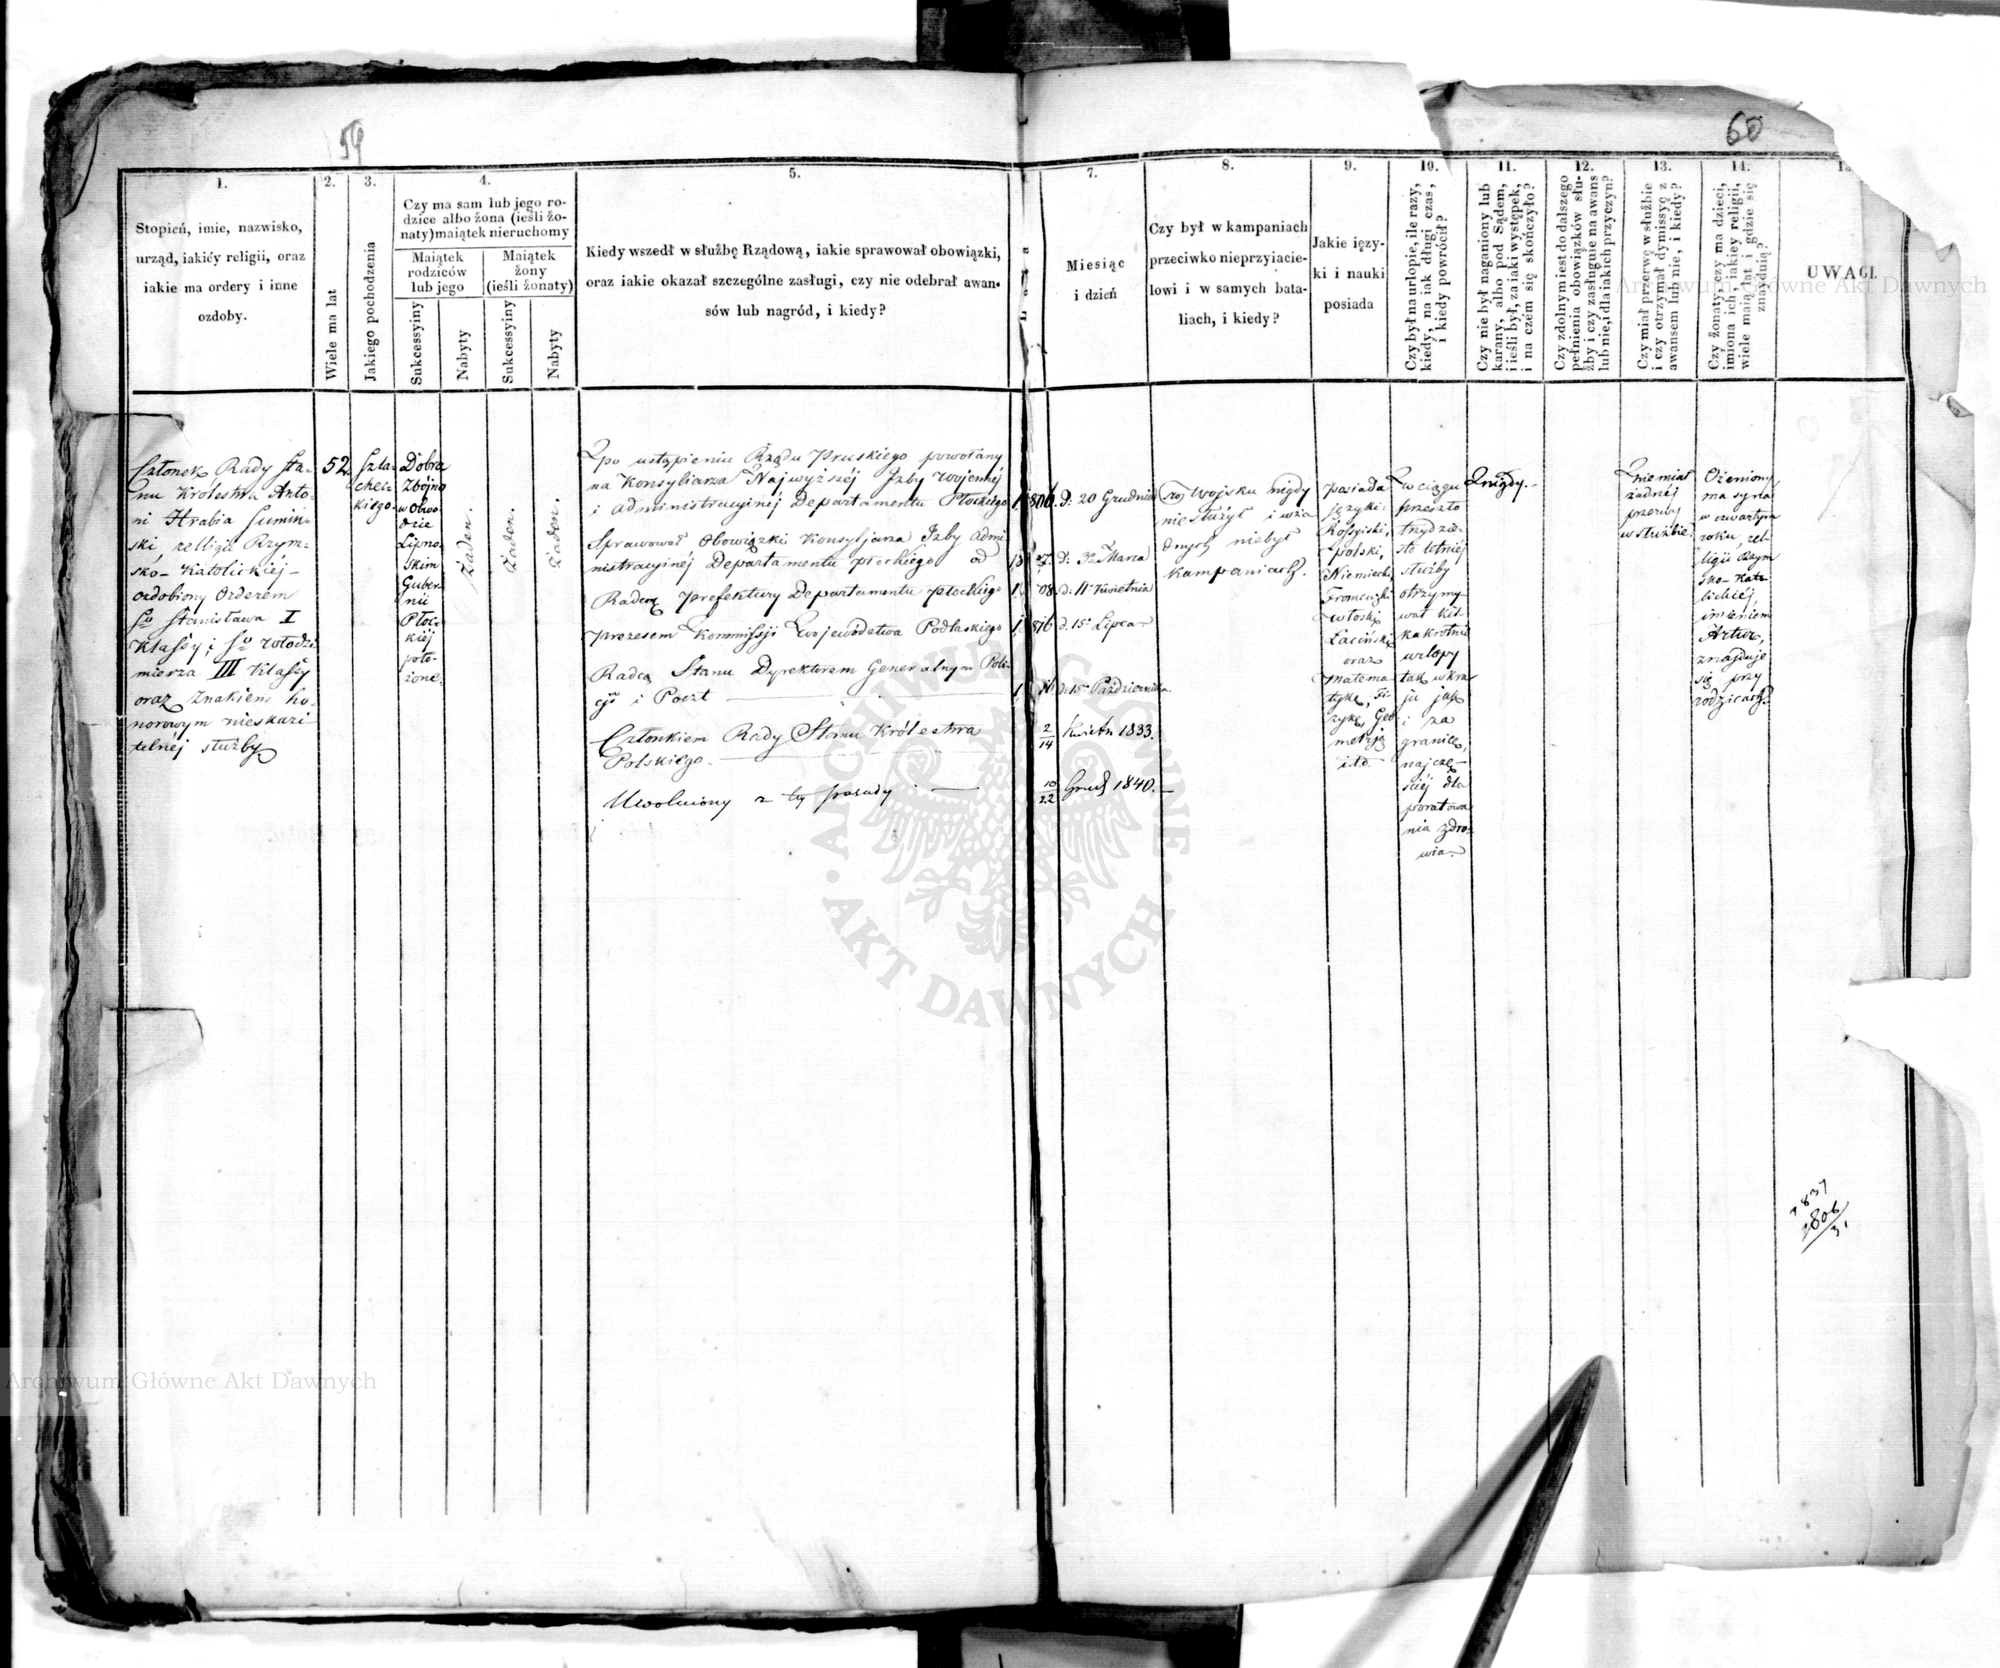 59
60
1.
Stopień, imie, nazwisko,
urząd, iakiéy religii, oraz
iakie ma ordery i inne
ozdoby.
2.
Wiele ma lat
3.
Jakiego pochodzenia
4.
Czy ma sam lub jego ro-
dzice albo żona (ieśli żo-
naty) maiątek nieruchomy
Maiątek
rodziców
lub jego
Maiątek
żony
(ieśli żonaty)
Sukcessyiny
Nabyty
Sukcessyiny
Nabyty
5.
Kiedy wszedł w służbę Rządową, iakie sprawował obowiązki,
oraz iakie okazał szczególne zasługi, czy nie odebrał awan-
sów lub nagród, i kiedy?
7.
Miesiąc
i dzień
8.
Czy był w kampaniach
przeciwko nieprzyiacie-
lowi i w samych bata-
liach, i kiedy?
9.
Jakie ięzy-
ki i nauki
posiada
10.
Czy był na urlopie, ile razy,
kiedy, na iak długi czas,
i kiedy powrócił?
11.
Czy nie był naganiony lub
karany, albo pod Sądem,
i ieśli był, za iaki występek,
i na czém się skończyło?
12.
Czy zdolnym iest do dalszego
pełnienia obowiązków słu-
żby i czy zasługuie na awans
lub nie, i dla iakich przyczyn?
13.
Czy miał przerwę w służbie
i czy otrzymał dymissyę z
awansem lub nie, i kiedy?
14.
Czy żonaty, czy ma dzieci,
imiona ich, iakiey religii,
wiele maią lat i gdzie się
znayduią?
UWAGI.
Członek Rady Sta-
nu Królestwa Anto-
ni Hrabia Sumiń-
ski, religii Rzym-
sko-Katolickiéj
ozdobiony Orderem
Sgo Stanisława I
Klassy, i Sgo Włodzi
mierza III Klassy
oraz Znakiem ho-
norowym nieskazi
telnéj służby
52.
Szla-
chec-
kiego.
Dobra
Zbójno
w Obwo-
dzie
Lipno-
skim
Guber-
nii
Płoc-
kiéj
poło-
żone.
Żaden.
Żaden.
Żaden.
Po ustąpieniu Rządu Pruskiego powołany
na Konsyliarza Najwyższéj Izby Wojennéj
i administracyjnéj Departamentu Płockiego
Sprawował Obowiązki Konsyliarza Izby Admi
nistracyjnéj Departamentu Płockiego od
Radcą Prefektury Departamentu Płockiego
Prezesem Kommissji Województwa Podlaskiego
Radcą Stanu Dyrektorem Generalnym Poli-
cji i Poczt
Członkiem Rady Stanu Królestwa
Polskiego.
Uwolniony z téj posady
1806
d: 20 Grudnia
d. 3 Marca
08
d. 11 Kwietnia
1816
d. 15 Lipca
d. 15 Październik
2/14 Kwietn 1833.
10/22 Grud 1840.
W Wojsku nigdy
nie służył i w ża
dnych niebył
kampaniach.
Posiada
języki:
Rossyiski,
Polski,
Niemiecki,
Francuzki
Włoski
Łaciński
oraz
Matema
tykę, Fi-
zykę, Geo
metrją
itd.
W ciągu
przeszło
trzydzie-
sto letniéj
służby
otrzymy-
wał kil-
kakrotnie
urlopy
tak w kra
ju jak
i za
granicę,
najczę-
ściéj dla
poratowa
nia zdro-
wia.
Nigdy.
Nie miał
żadnéj
przerwy
w służbie.
Ożeniony,
ma syna
w czwartym
roku, rel-
igii Rzym
sko-Kato
lickiéj,
imieniem
Artur,
znajduje
się przy
rodzicach.
1837
1806
31
Archiwum Główne Akt Dawnych
Archiwum Główne Akt Dawnych
ARCHIWUM GŁÓWNE AKT DAWNYCH